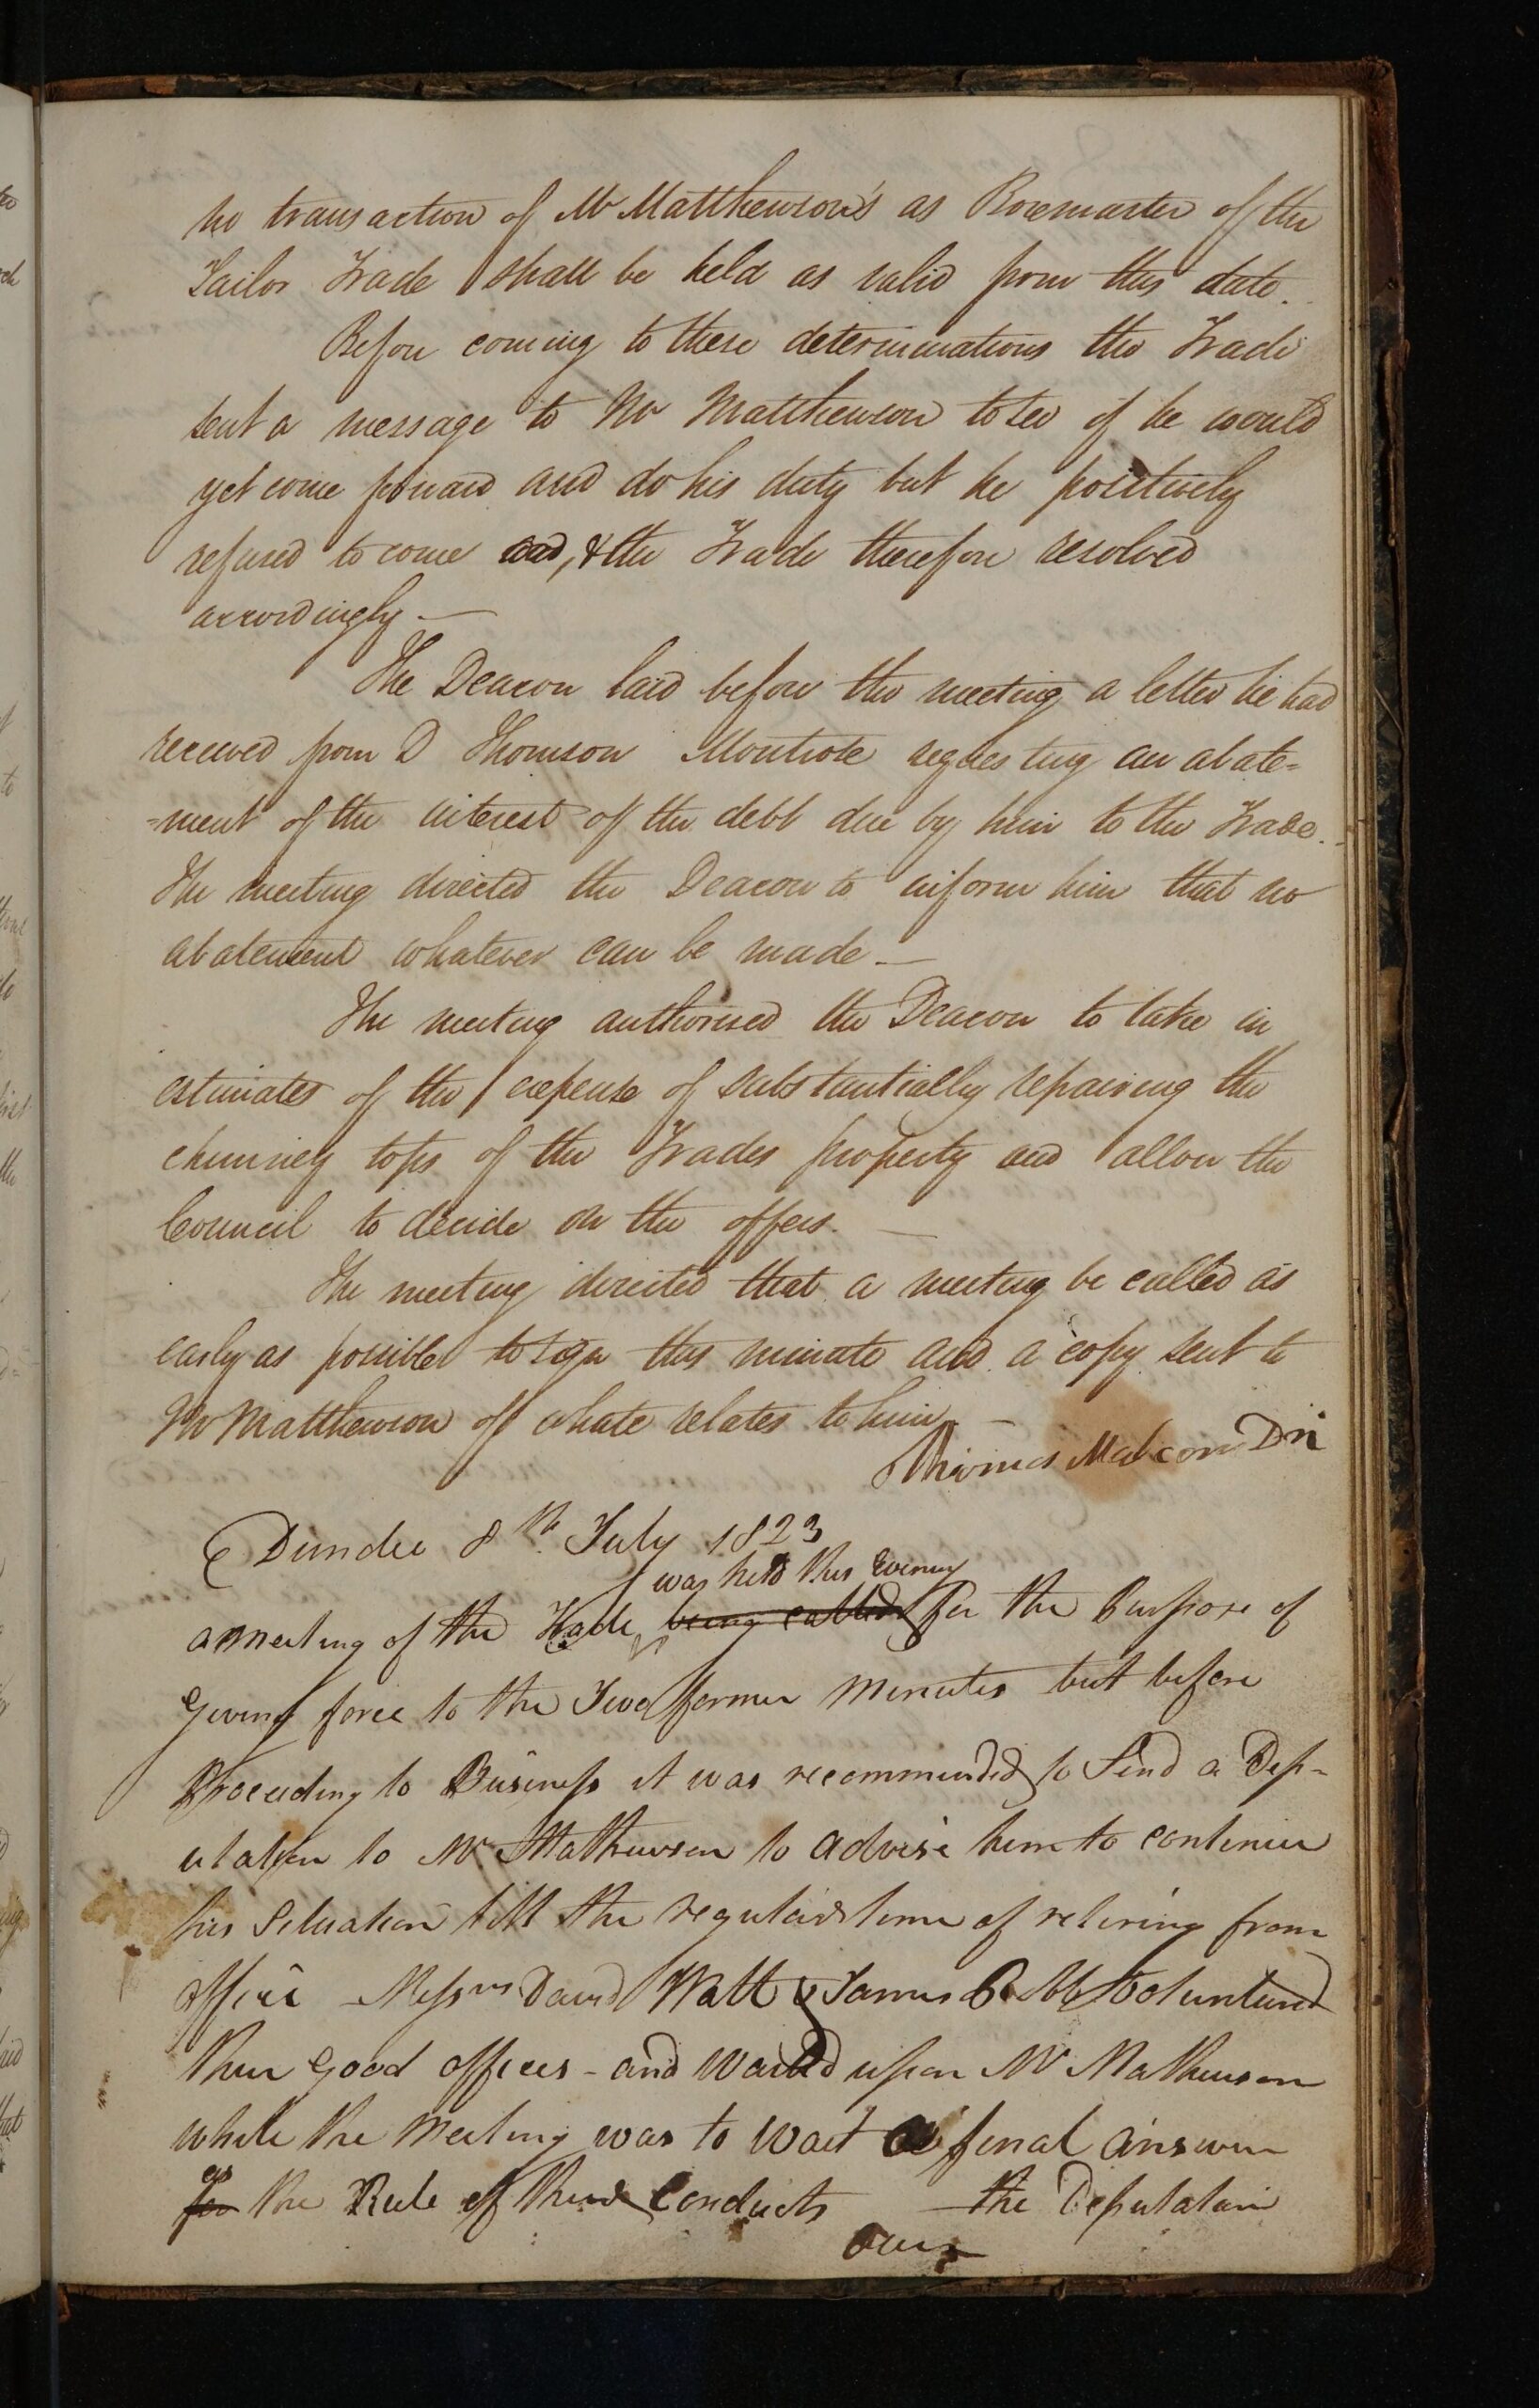 no transaction of Mr Matthewson's as Boxmaster of the
Tailor Trade shall be held as valid from this date.
Before coming to these determinations the Trade
sent a message to Mr Matthewson to see if he would
yet come forward and do his duty but he positively
refused to come and, & the Trade therefore resolved
accordingly —
The Deacon laid before the meeting a letter he had
received from D Thomson Montrose requesting an abate=
=ment of the interest of the debt due by him to the Trade.
The meeting directed the Deacon to inform him that no
abatement whatever can be made —
The meeting authorised the Deacon to take in
estimates of the expense of substantially repairing the
chimney tops of the Trades property and allow the
Council to decide on the offers. —
The meeting directed that a meeting be called as
early as possible to sign this minute and a copy sent to
Mr Matthewson of whate relates to him —
Thomas Malcom Dn
Dundee 8th July 1823
was held this Evening
a meeting of the Trade being called for the Purpose of
Giving force to the Two former Minutes but before
Proceeding to Business it was recommended to Send a Dep-
utation to Mr Mathewson to advise him to continue
his Situation till the regular time of retiring from
office - Messrs David Watt & James Voluntered
their Good offices - and Waited upon Mr Mathewson
while the Meeting was to Wait a final answer
as
for the Rule of their Conducts — the Deputation
over